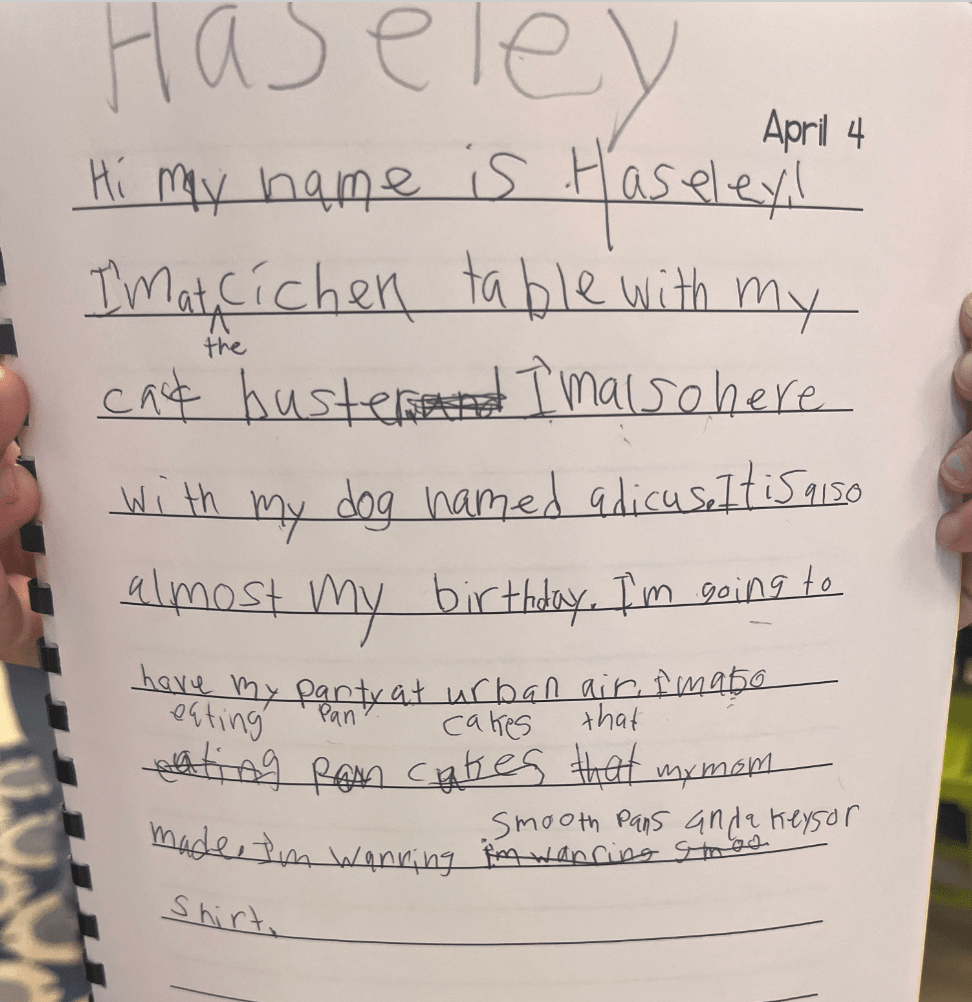 Haseley
April 4
Hi my name is Haseley!
I'm at cichen table with my
the
cat buster and I'm also here
with my dog named adicus. It is also
almost my birthday. I'm going to
have my party at urban air. I'm also
eating pan cakes that
eating pan cakes that my mom
smooth pans and a keysor
made. I'm wanring im wanring smoo
shirt.